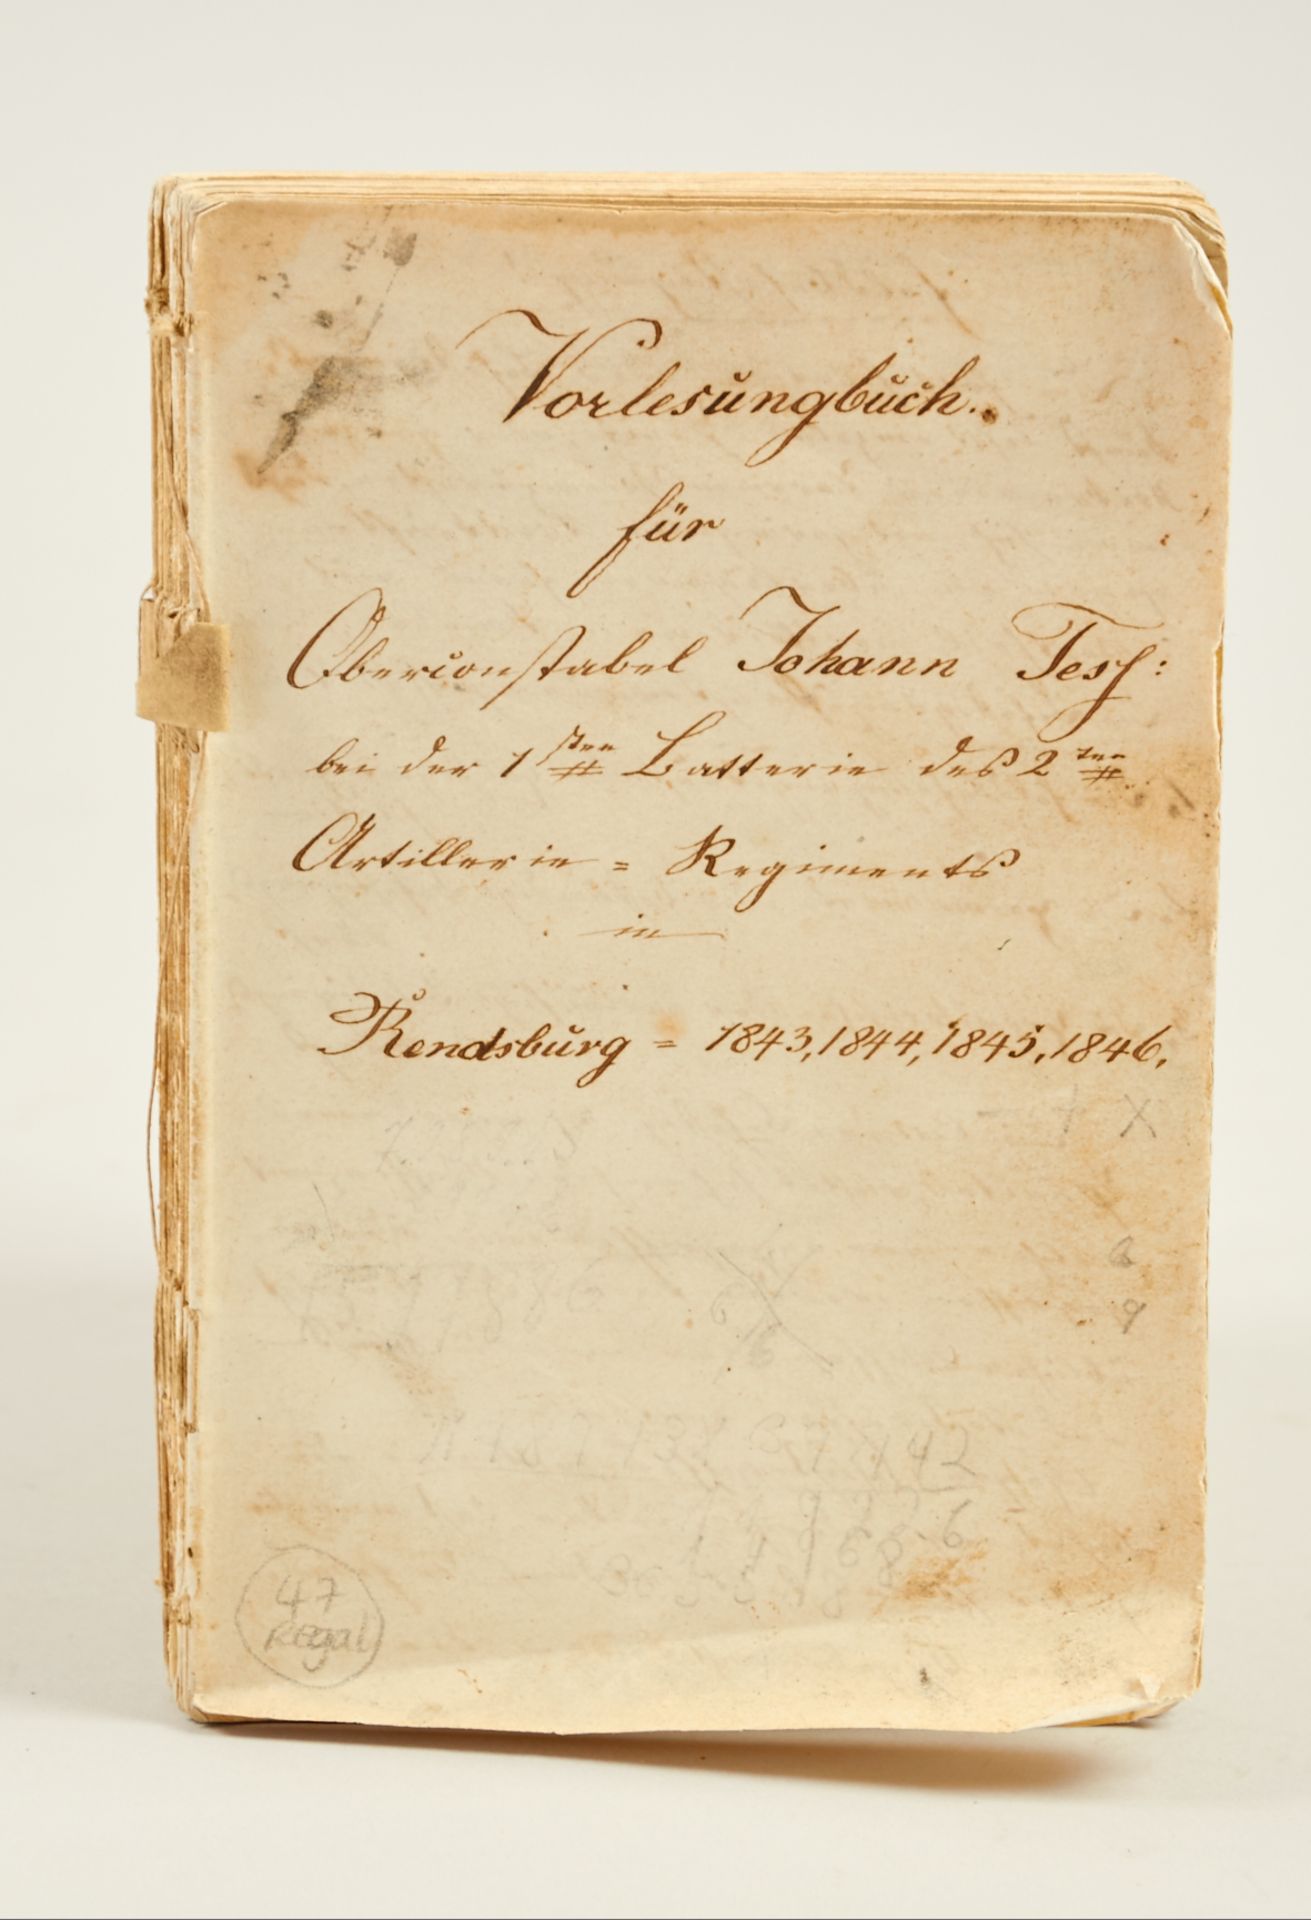 Vorlesungbuch.
für
Oberconstabel Johann Tesſ:
bei der 1sten Batterie des 2ten
Artillerie = Regiments
in
Rendsburg = 1843, 1844, 1845, 1846.
47
Regal